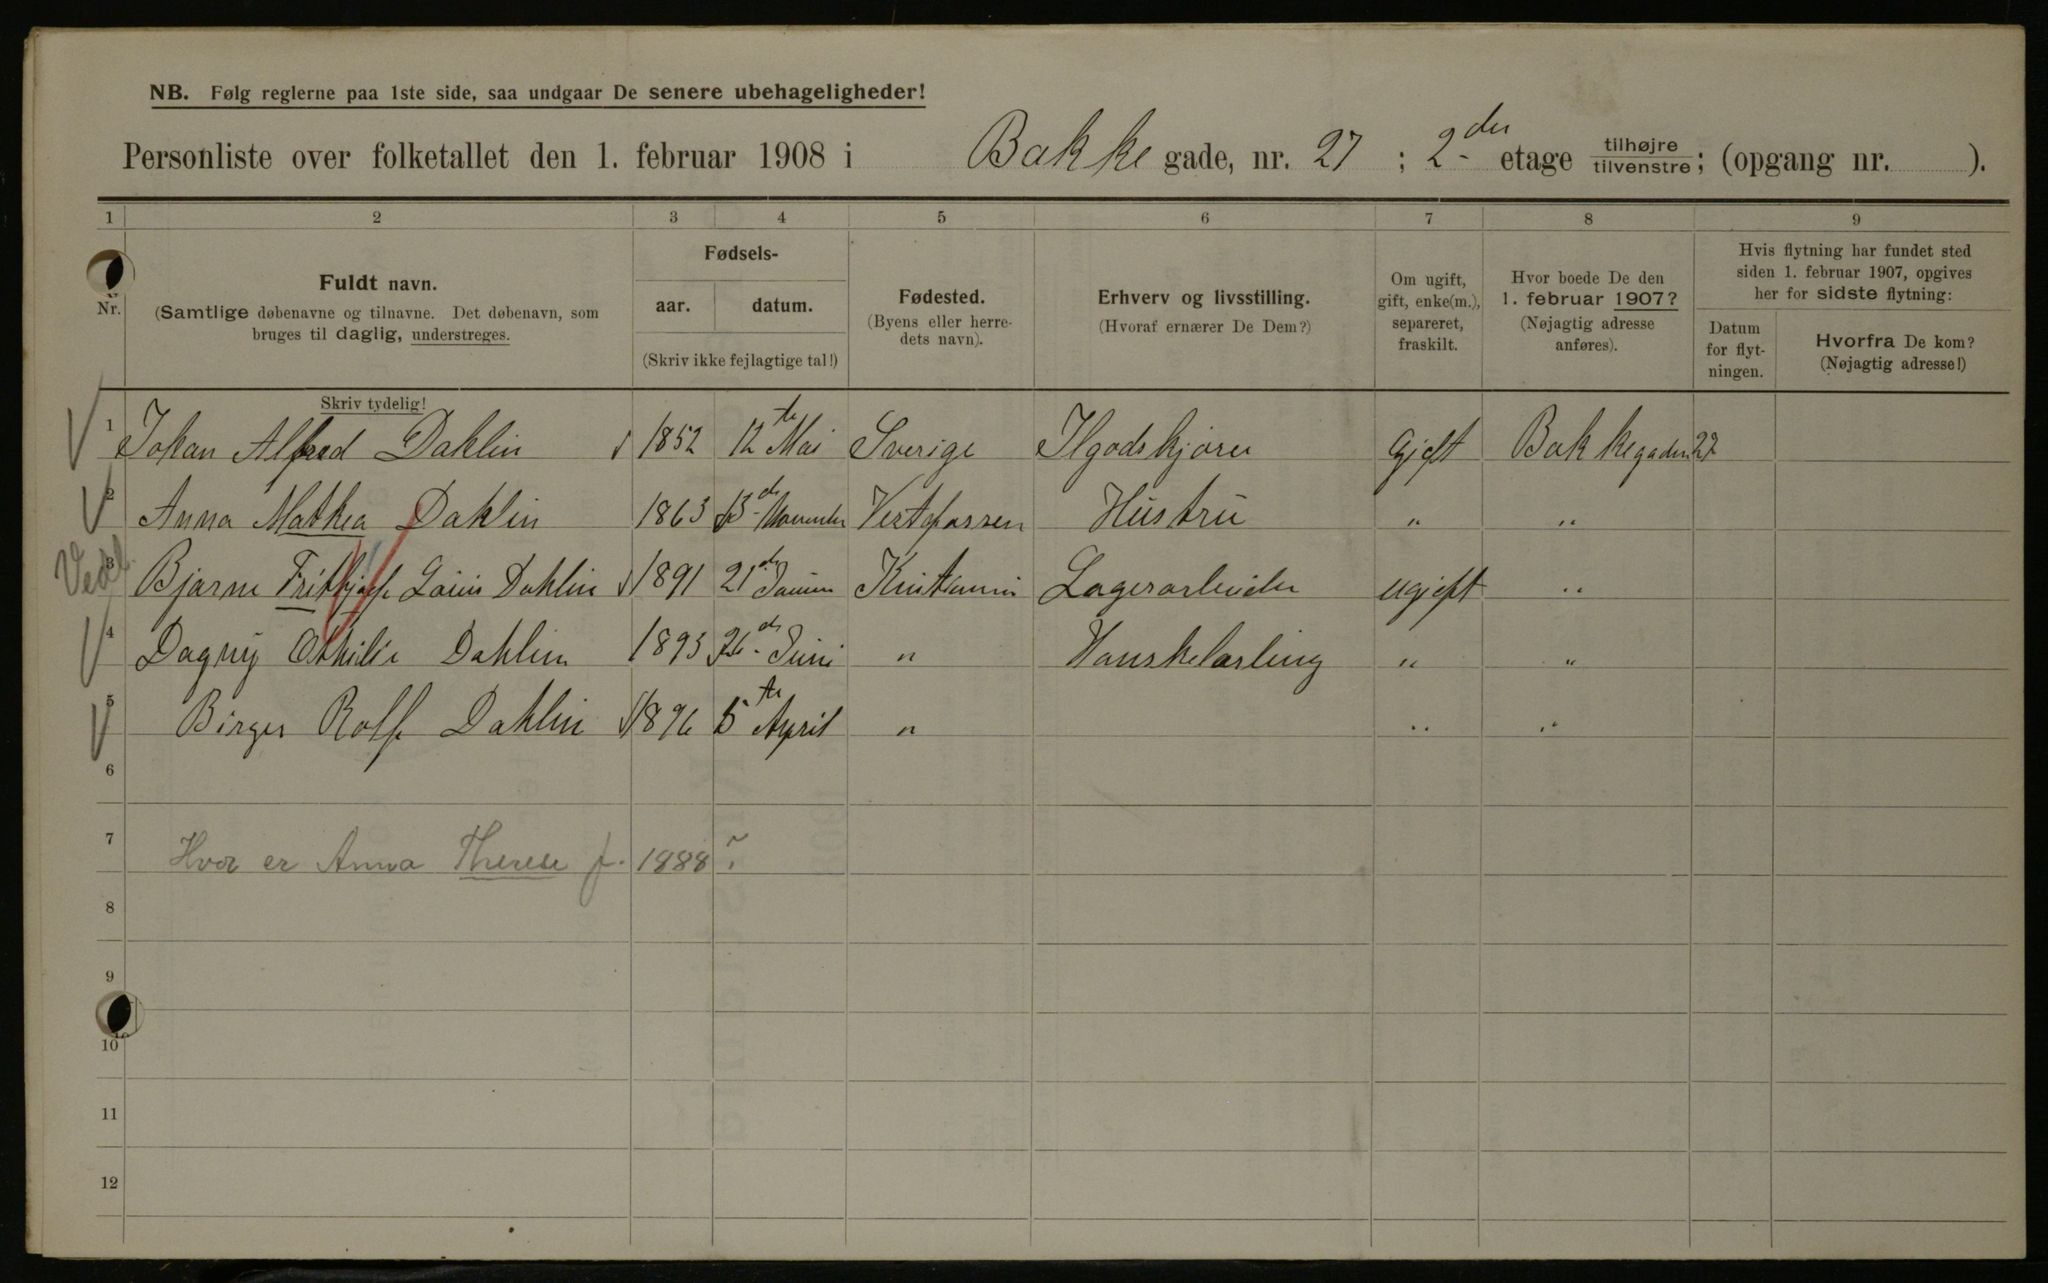 NB. Følg reglerne paa 1ste side, saa undgaar De senere ubehageligheder!
Personliste over folketallet den 1. februar 1908 i Bakke gade, nr. 27 ; 2den etage tilhøjre tilvenstre; (opgang nr. ).
1 2 3 4 5 6 7 8 9
Nr.
Fuldt navn.
(Samtlige døbenavne og tilnavne. Det døbenavn, som
bruges til daglig, understreges.
Skriv tydelig!
Fødsels-
aar. datum.
(Skriv ikke fejlagtige tal!)
Fødested.
(Byens eller herre-
dets navn).
Erhverv og livsstilling.
(Hvoraf ernærer De Dem?)
Om ugift,
gift, enke(m.),
separeret,
fraskilt.
Hvor boede De den
1. februar 1907?
(Nøjagtig adresse
anføres).
Hvis flytning har fundet sted
siden 1. februar 1907, opgives
her for sidste flytning:
Datum
for flyt-
ningen.
Hvorfra De kom?
(Nøjagtig adresse!)
1 Johan Alfred Dahlin 1852 12te Mai Sverige Ilgodskjører Gjeft Bakkegaden 27
2 Anna Mathea Dahlin 1863 13de November Vestfossen Hustru " "
Vedl.
3 Bjarne Frithjolf Louis Dahlin 1891 21de Kristiania Lagerarbeider ugjeft "
4 Dagny Othilie Dahlin 1893 26de Juni " Hanskelærling " "
5 Birger Rolf Dahlin 1896 5te April " " "
6
7 Hvor er Anna Therese f. 1888 ?
8
9
10
11
12